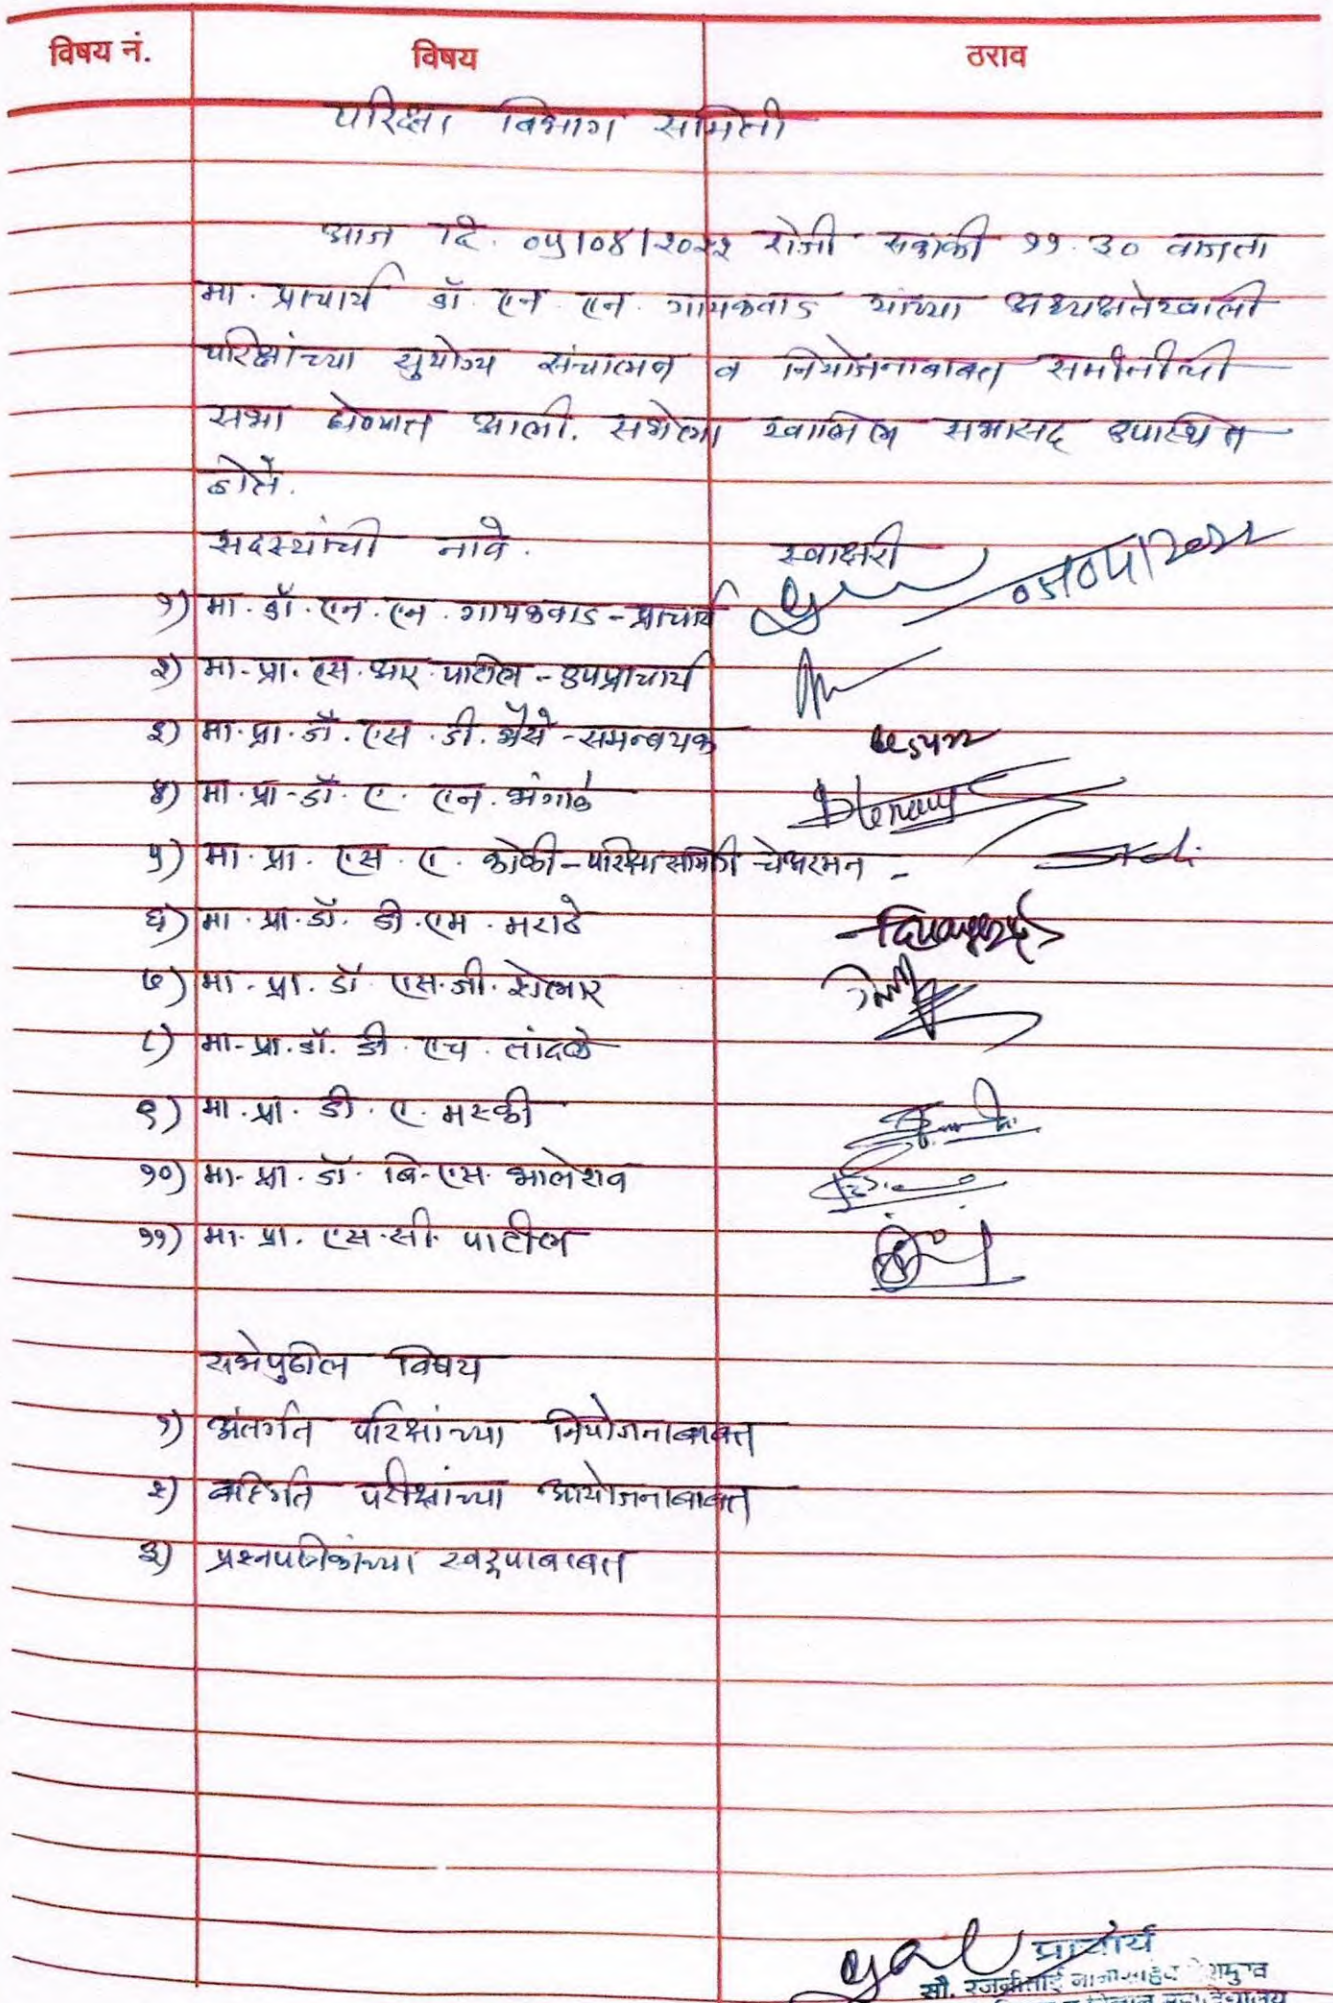 विषय नं. विषय ठराव
परिक्षा विभाग समिती
आज दि. ०५/०४/२०२२ रोजी सकाळी ११.३० वाजता
मा. प्राचार्य डॉ. एन. एन. गायकवाड यांच्या अध्यक्षतेखाली
परिक्षांच्या सुयोग्य संचालन व नियोजनाबाबत समीतीची
सभा घेण्यात आली. सभेला खालिल सभासद उपास्थित
होते.
सदस्यांची नावे. स्वाक्षरी
१) मा. डॉ. एन. एन. गायकवाड - प्राचार्य
२) मा. प्रा. एस. आर. पाटील - उपप्राचार्य
३) मा. प्रा. डॉ. एस. डी. भैसे - समन्वयक
४) मा. प्रा. डॉ. ए. एन. भंगाळे
५) मा. प्रा. एस. ए. कोळी - परिक्षा समिती चेअरमन -
६) मा. प्रा. डॉ. डी. एम. मराठे
७) मा. प्रा. डॉ. एस. जी. शेलार
८) मा. प्रा. डॉ. डी. एच. तांदळे
९) मा. प्रा. डी. ए. मस्की
१०) मा. प्रा. डॉ. बि. एस. भालेराव
११) मा. प्रा. एस. सी. पाटील
सभेपुढील विषय
१) अंतर्गत परिक्षांच्या नियोजनाबाबत
२) बहिर्गत परीक्षांच्या आयोजनाबाबत
३) प्रश्नपत्रिकांच्या स्वरूपाबाबत
प्राचार्य
सौ. रजनीताई नानासाहेब देशमुख